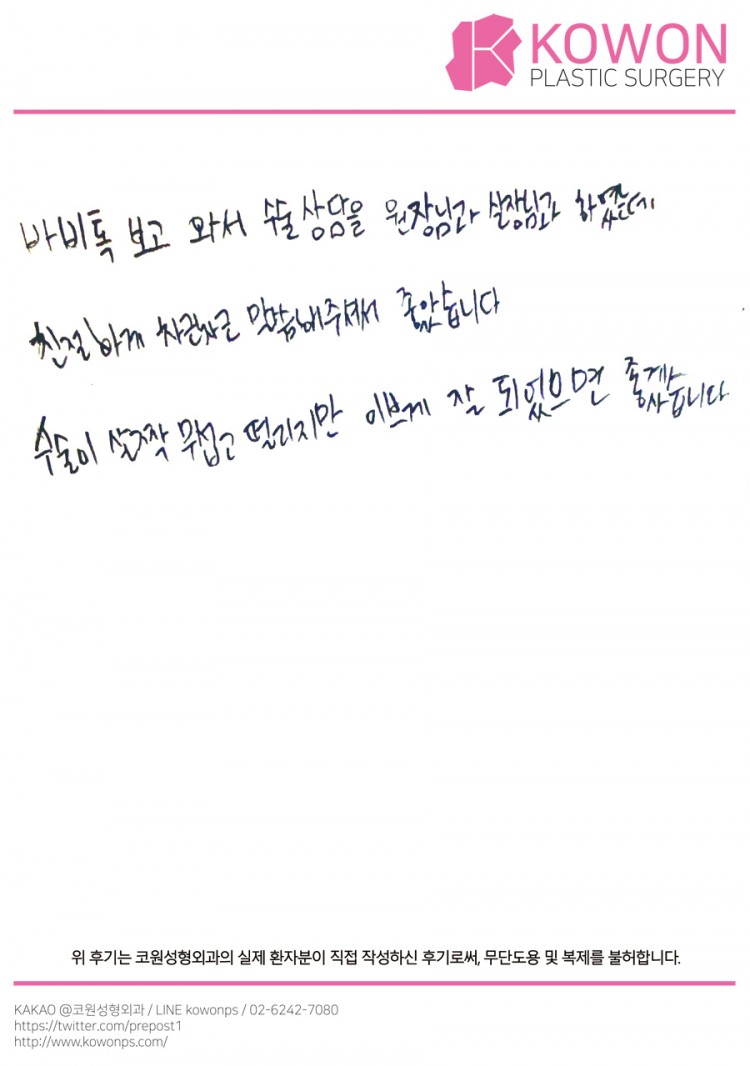 KOWON
PLASTIC SURGERY
바비톡 보고 와서 수술 상담을 원장님과 실장님과 하였는데
친절하게 차근차근 말씀해주셔서 좋았습니다
수술이 살짝 무섭고 떨리지만 이쁘게 잘 되었으면 좋겠습니다
위 후기는 코원성형외과의 실제 환자분이 직접 작성하신 후기로써, 무단도용 및 복제를 불허합니다.
KAKAO @코원성형외과 / LINE kowonps / 02-6242-7080
https://twitter.com/prepost1
http://www.kowonps.com/